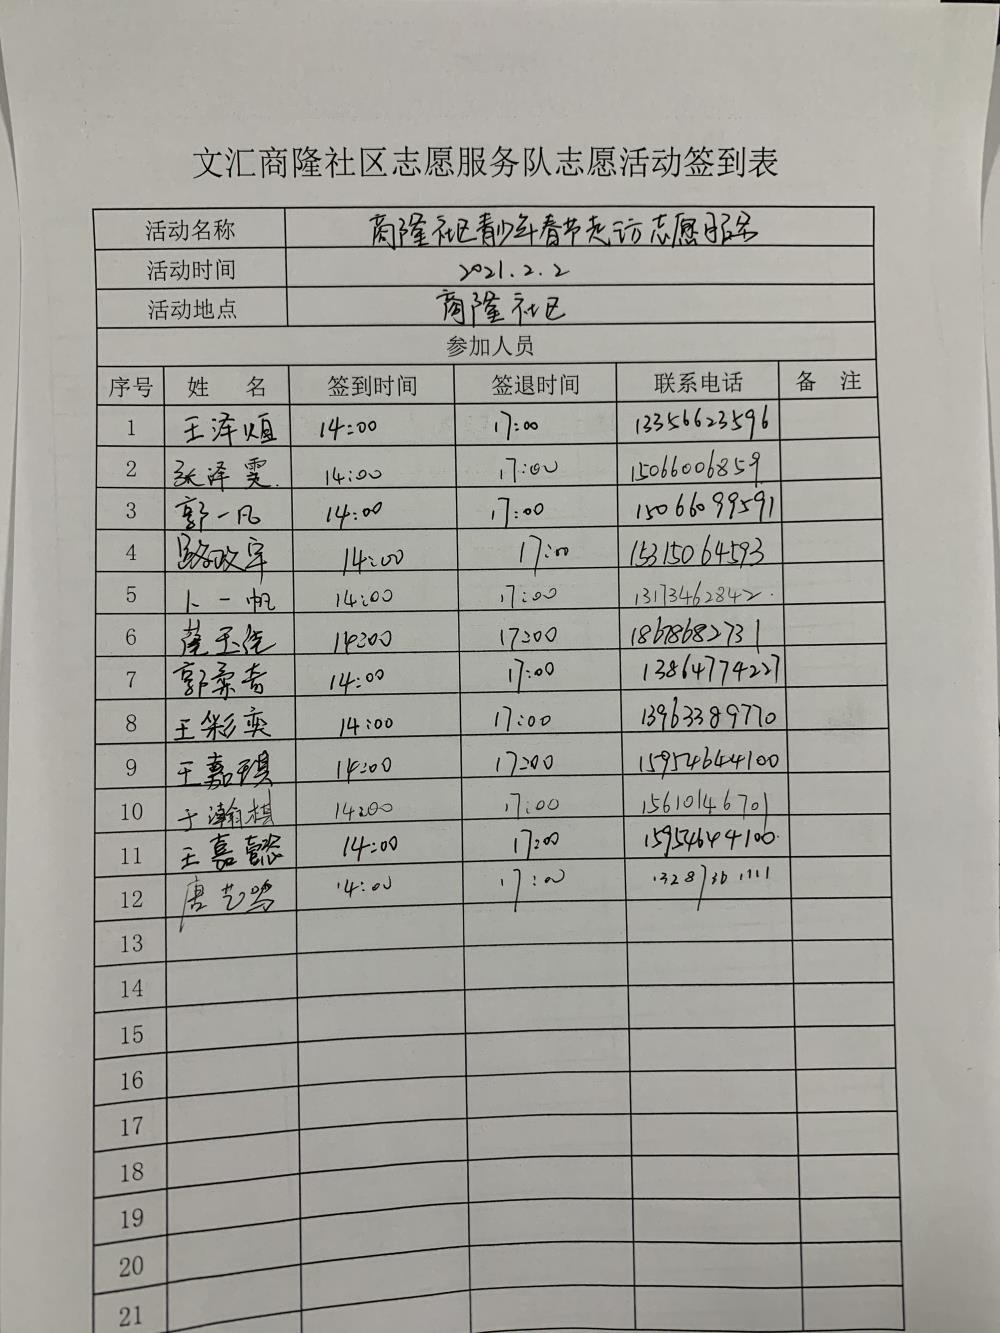 文汇商隆社区志愿服务队志愿活动签到表
活动名称 商隆社区青少年春节走访志愿服务
活动时间 2021.2.2
活动地点 商隆社区
参加人员
序号 姓 名 签到时间 签退时间 联系电话 备 注
1 王泽恒 14:00 17:00 13356623596
2 张泽雯 14:00 17:00 15066006859
3 郭一凡 14:00 17:00 15066099591
4 路政宇 14:00 17:00 15315064593
5 卜一帆 14:00 17:00 13173462842
6 14:00 17:00 18678682731
7 郭柔杏 14:00 17:00 13864774227
8 王彩奕 14:00 17:00 13963389770
9 王嘉琪 14:00 17:00 15954644100
10 于瀚棋 14:00 17:00 15610146701
11 王嘉懿 14:00 17:00 15954644100
12 唐艺鸣 14:00 17:00
13
14
15
16
17
18
19
20
21